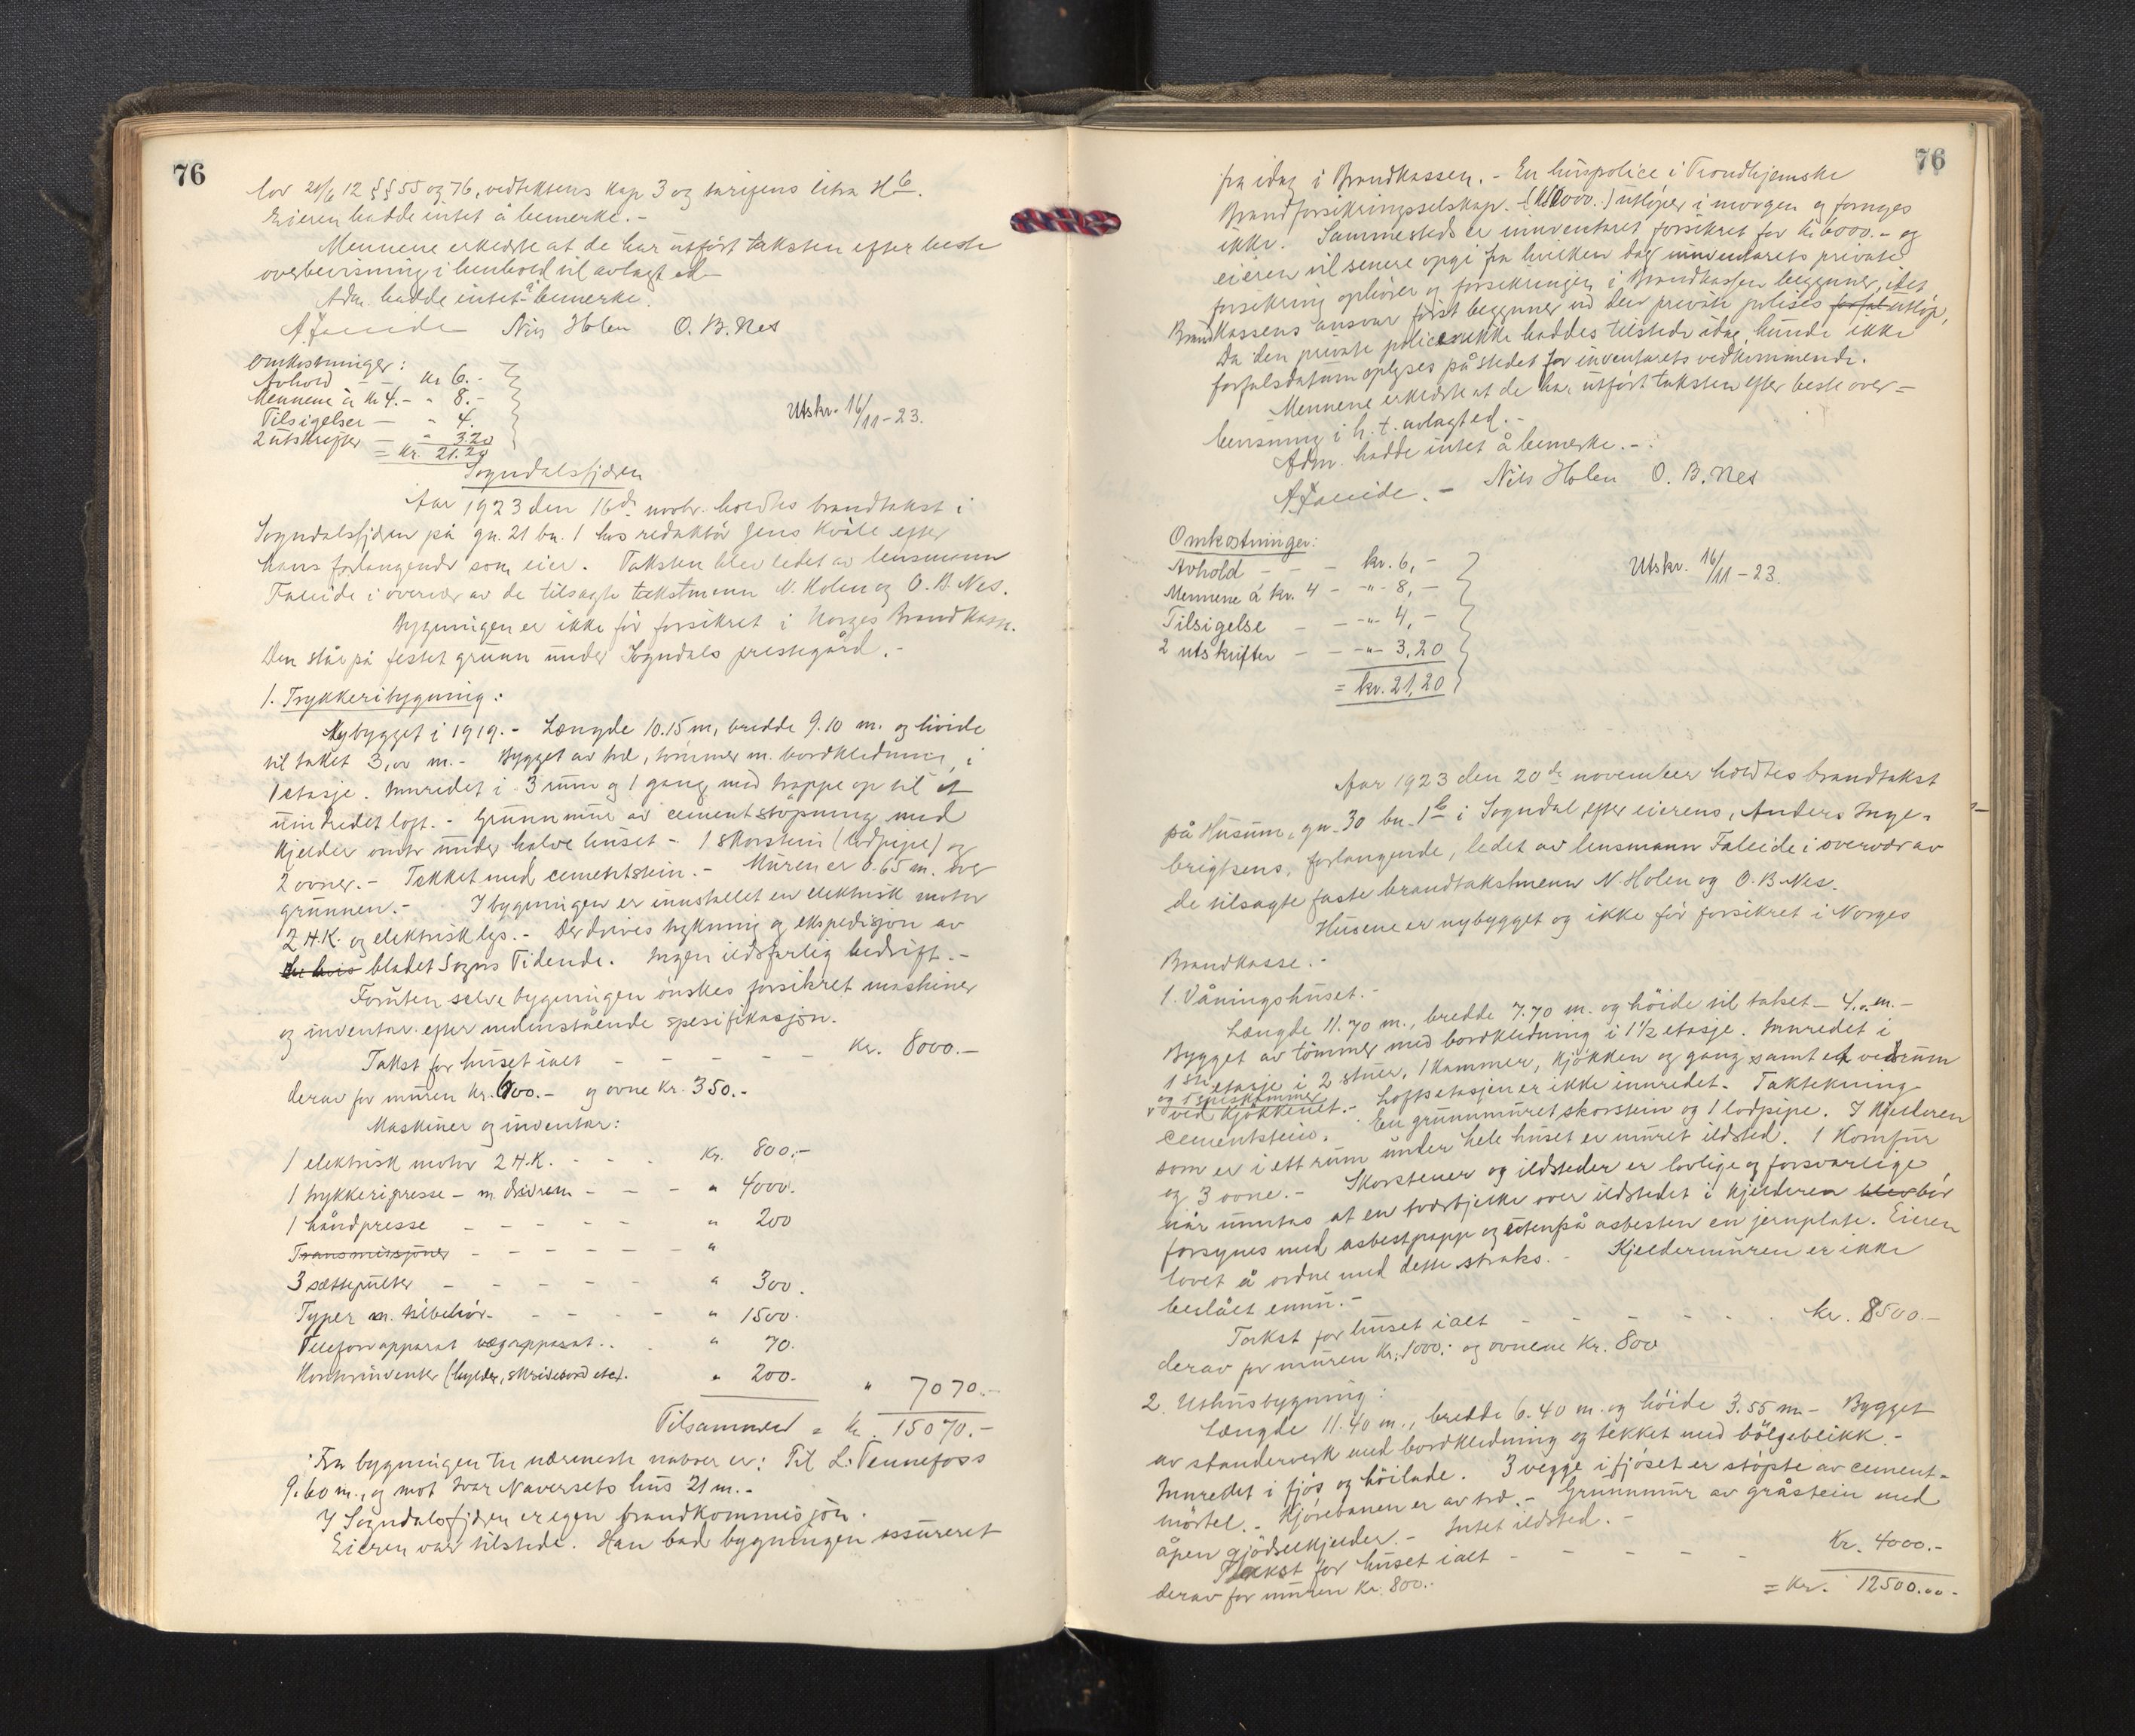 76
lov 21/6 12 §§ 55 og 76, vedtektens kap 3 og tarifens litra H 6.
Eieren hadde intet å bemerke.-
Mennene erklærte at de har utført taksten efter beste
overbevisning i henhold til avlagt ed.-
Adm. hadde intet å bemerke.
A. Faleide Nils Holen O. B. Nes
Omkostninger:
Avhold - - kr 6.-
Mennene à kr 4.- " 8.-
Tilsigelser - " 4.
2 utskrifter - " 3.20
= kr. 21.20
Utskr. 16/11-23.
Sogndalsfjæren
Aar 1923 den 16de novbr. holdtes brandtakst i
Sogndalsfjæren på gn. 21 bn. 1 hos redaktør Jens Kvåle efter
hans forlangende som eier. Taksten blev ledet av lensmann
Faleide i overvær av de tilsagte takstmenn N. Holen og O. B. Nes.
Bygningen er ikke før forsikret i Norges Brandkasse.
Den står på festet grunn under Sogndals prestegård.-
1. Trykkeribygning:
Nybygget i 1919.- Længde 10.15 m, bredde 9.10 m. og høide
til taket 3,00 m.- Bygget av træ, tømmer m. bordkledning, i
1 etasje. Innredet i 3 rum og 1 gang med trappe op til et
uinnredet loft.- Grunnmur av cementstøpning med
kjelder omtr under halve huset - 1 skorstein (lodpipe) og
2 ovner.- Tekket med cementstein.- Muren er 0.65 m. over
grunnen.- I bygningen er innstallet en elektrisk motor
2 H.K. og elektrisk lys.- Der drives trykning og ekspedisjon av
bladet Sogns Tidende. Ingen ildsfarlig bedrift.-
Foruten selve bygningen ønskes forsikret maskiner
og inventar efter nedenstående spesifikasjon.
Takst for huset ialt - - - - - kr. 8000.-
derav for muren kr. 600.- og ovne kr. 350.-
Maskiner og inventar:
1 elektrisk motor 2 H.K. - - - kr. 800.-
1 trykkeripresse - m. drivrem - - - " 4000.
1 håndpresse - - - - - " 200
Transmissjoner - - - - - - "
3 sættepulter - - - - - " 300.
Typer m. tilbehør - - - - " 1500.
Telefonapparat vægapparat. . . " 70.
Kontorinventar (hylder, skrivebord etc). " 200. " 7070.-
Tilsammen = kr. 15070.-
Fra bygningen til nærmeste naboer er: Til L. Tennefoss
9.60 m., og mot Ivar Naversets hus 21 m.-
I Sogndalsfjæren er egen brandkommisjon.
Eieren var tilstede. Han bad bygningen assureret
76
fra idag i Brandkassen.- En huspolice i Trondhjemske
Brandforsikringsselskap. utløper i morgen og fornyes
ikke. Sammesteds er innventaret forsikret for kr. 6000.- og
eieren vil senere opgi fra hvilken dag innventarets private
forsikring ophører og forsikringen i Brandkassen begynner, idet
Brandkassens ansvar først begynner ved den private polises utløp,
Da den private police ikke haddes tilstede idag, kunde ikke
forfalsdatum oplyses på stedet for inventarets vedkommende.
Mennene erklærte at de har utført taksten efter beste over-
bevisning i h. t. avlagt ed.-
Adm. hadde intet å bemerke.-
A. Faleide.- Nils Holen O. B. Nes
Omkostninger:
Avhold - - - kr. 6,-
Mennene à kr. 4 - -"- 8,-
Tilsigelse - - -"- 4,-
2 utskrifter - - -"- 3,20
= kr. 21,20
Utskr. 16/11-23.
Aar 1923 den 20de november holdtes brandtakst
på Husum, gn. 30 bn. 1 b i Sogndal, efter eierens, Anders Inge-
brigtsens, forlangende, ledet av lensmann Faleide i overvær av
de tilsagte faste brandtakstmenn N. Holen og O. B. Nes.
Husene er nybygget og ikke før forsikret i Norges
Brandkasse.-
1. Våningshuset.-
Længde 11.70 m., bredde 7.70 m. og høide til taket - 4.00 m.-
Bygget av tømmer med bordkledning i 1 1/2 etasje. Innredet i
1ste etasje i 2 stuer, 1 kammer, kjøkken og gang samt et vedrum
og 1 spiskammer
ved kjøkkenet.- Loftsetasjen er ikke innredet. Taktekning
cementstein. En grunnmuret skorstein og 1 lodpipe. I kjelderen
som er i ett rum under hele huset er muret ildsted. 1 komfur
og 3 ovne.- Skorstener og ildsteder er lovlige og forsvarlige
når unntas at en tverbjelke over ildstedet i kjelderen blev bør
forsynes med asbestpapp og utenpå asbesten en jernplate. Eieren
lovet å ordne med dette straks.- Kjeldermuren er ikke
beslået ennu.-
Takst for huset ialt - - - - - - kr. 8500.-
derav for muren kr. 1000.- og ovnene kr. 800
2. Uthusbygning:
Længde 11.40 m., bredde 6.40 m. og høide 3.55 m.- Bygget
av standerverk med bordkledning og tekket med bølgeblikk.-
Innredet i fjøs og høilade. 3 vegge i fjøset er støpte av cement-
mørtel.- Kjørebanen er av træ.- Grunnmur av gråstein med
åpen gjødselkjelder.- Intet ildsted.-
Takst for huset ialt - - - - - Kr. 4000.-
derav for muren kr. 800.-
= Kr. 12500.00.-